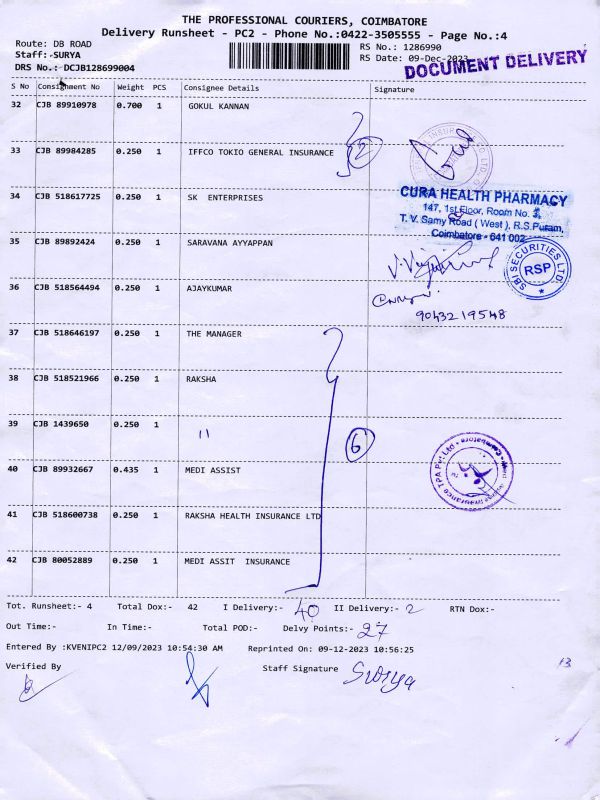 THE PROFESSIONAL COURIERS, COIMBATORE
Delivery Runsheet - PC2 - Phone No.:0422-3505555 - Page No.:4
Route: DB ROAD
Staff:-SURYA
DRS No.: DCJB128699004
RS No.: 1286990
RS Date: 09-Dec-2023
DOCUMENT DELIVERY
S No Consignment No Weight PCS Consignee Details Signature
32 CJB 89910978 0.700 1 GOKUL KANNAN
2
33 CJB 89984285 0.250 1 IFFCO TOKIO GENERAL INSURANCE
34 CJB 518617725 0.250 1 SK ENTERPRISES
CURA HEALTH PHARMACY
147, 1st Floor, Room No. 3,
T. V. Samy Road (West), R.S.Puram,
Coimbatore - 641 002
35 CJB 89892424 0.250 1 SARAVANA AYYAPPAN
SBI SECURITIES LTD
RSP
36 CJB 518564494 0.250 1 AJAYKUMAR
9043219548
37 CJB 518646197 0.250 1 THE MANAGER
38 CJB 518521966 0.250 1 RAKSHA
39 CJB 1439650 0.250 1 "
6
40 CJB 89932667 0.435 1 MEDI ASSIST
Insurance TPA Pvt Ltd • Coimbatore
41 CJB 518600738 0.250 1 RAKSHA HEALTH INSURANCE LTD
42 CJB 80052889 0.250 1 MEDI ASSIT INSURANCE
Tot. Runsheet:- 4 Total Dox:- 42 I Delivery:- 40 II Delivery:- 2 RTN Dox:-
Out Time:- In Time:- Total POD:- Delvy Points:- 27
Entered By :KVENIPC2 12/09/2023 10:54:30 AM Reprinted On: 09-12-2023 10:56:25
Verified By Staff Signature Surya
13